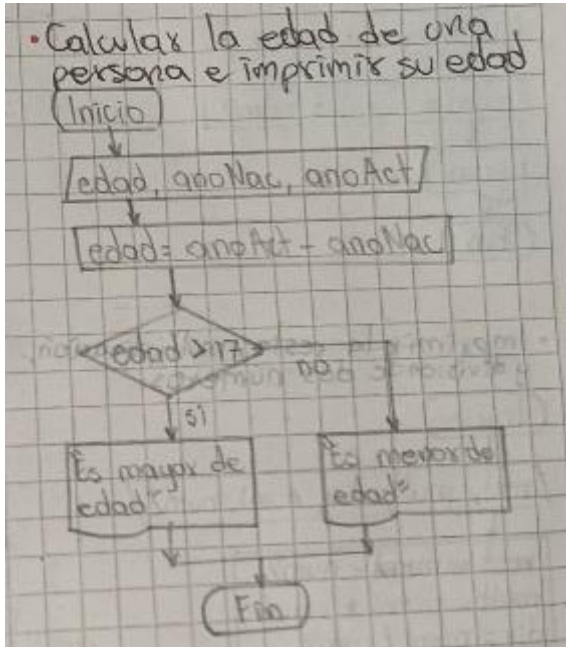 • Calcular la edad de una
persona e imprimir su edad
Inicio
edad, anoNac, anoAct
edad= anoAct - anoNac
edad >17
no
si
Es mayor de
edad"
Es menor de
edad"
Fin